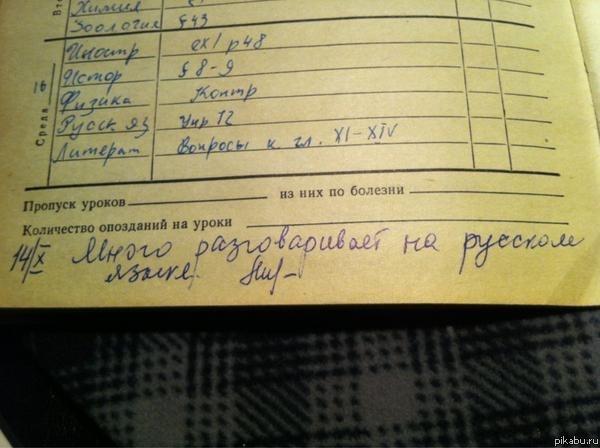 Химия
Зоология §43
Вт
Среда 16
Иностр ex1 p48
Истор § 8-9
Физика Контр
Русск яз Упр 12
Литерат Вопросы к гл. XI-XIV
Пропуск уроков из них по болезни
Количество опозданий на уроки
14/X Много разговаривает на русском
языке.
pikabu.ru